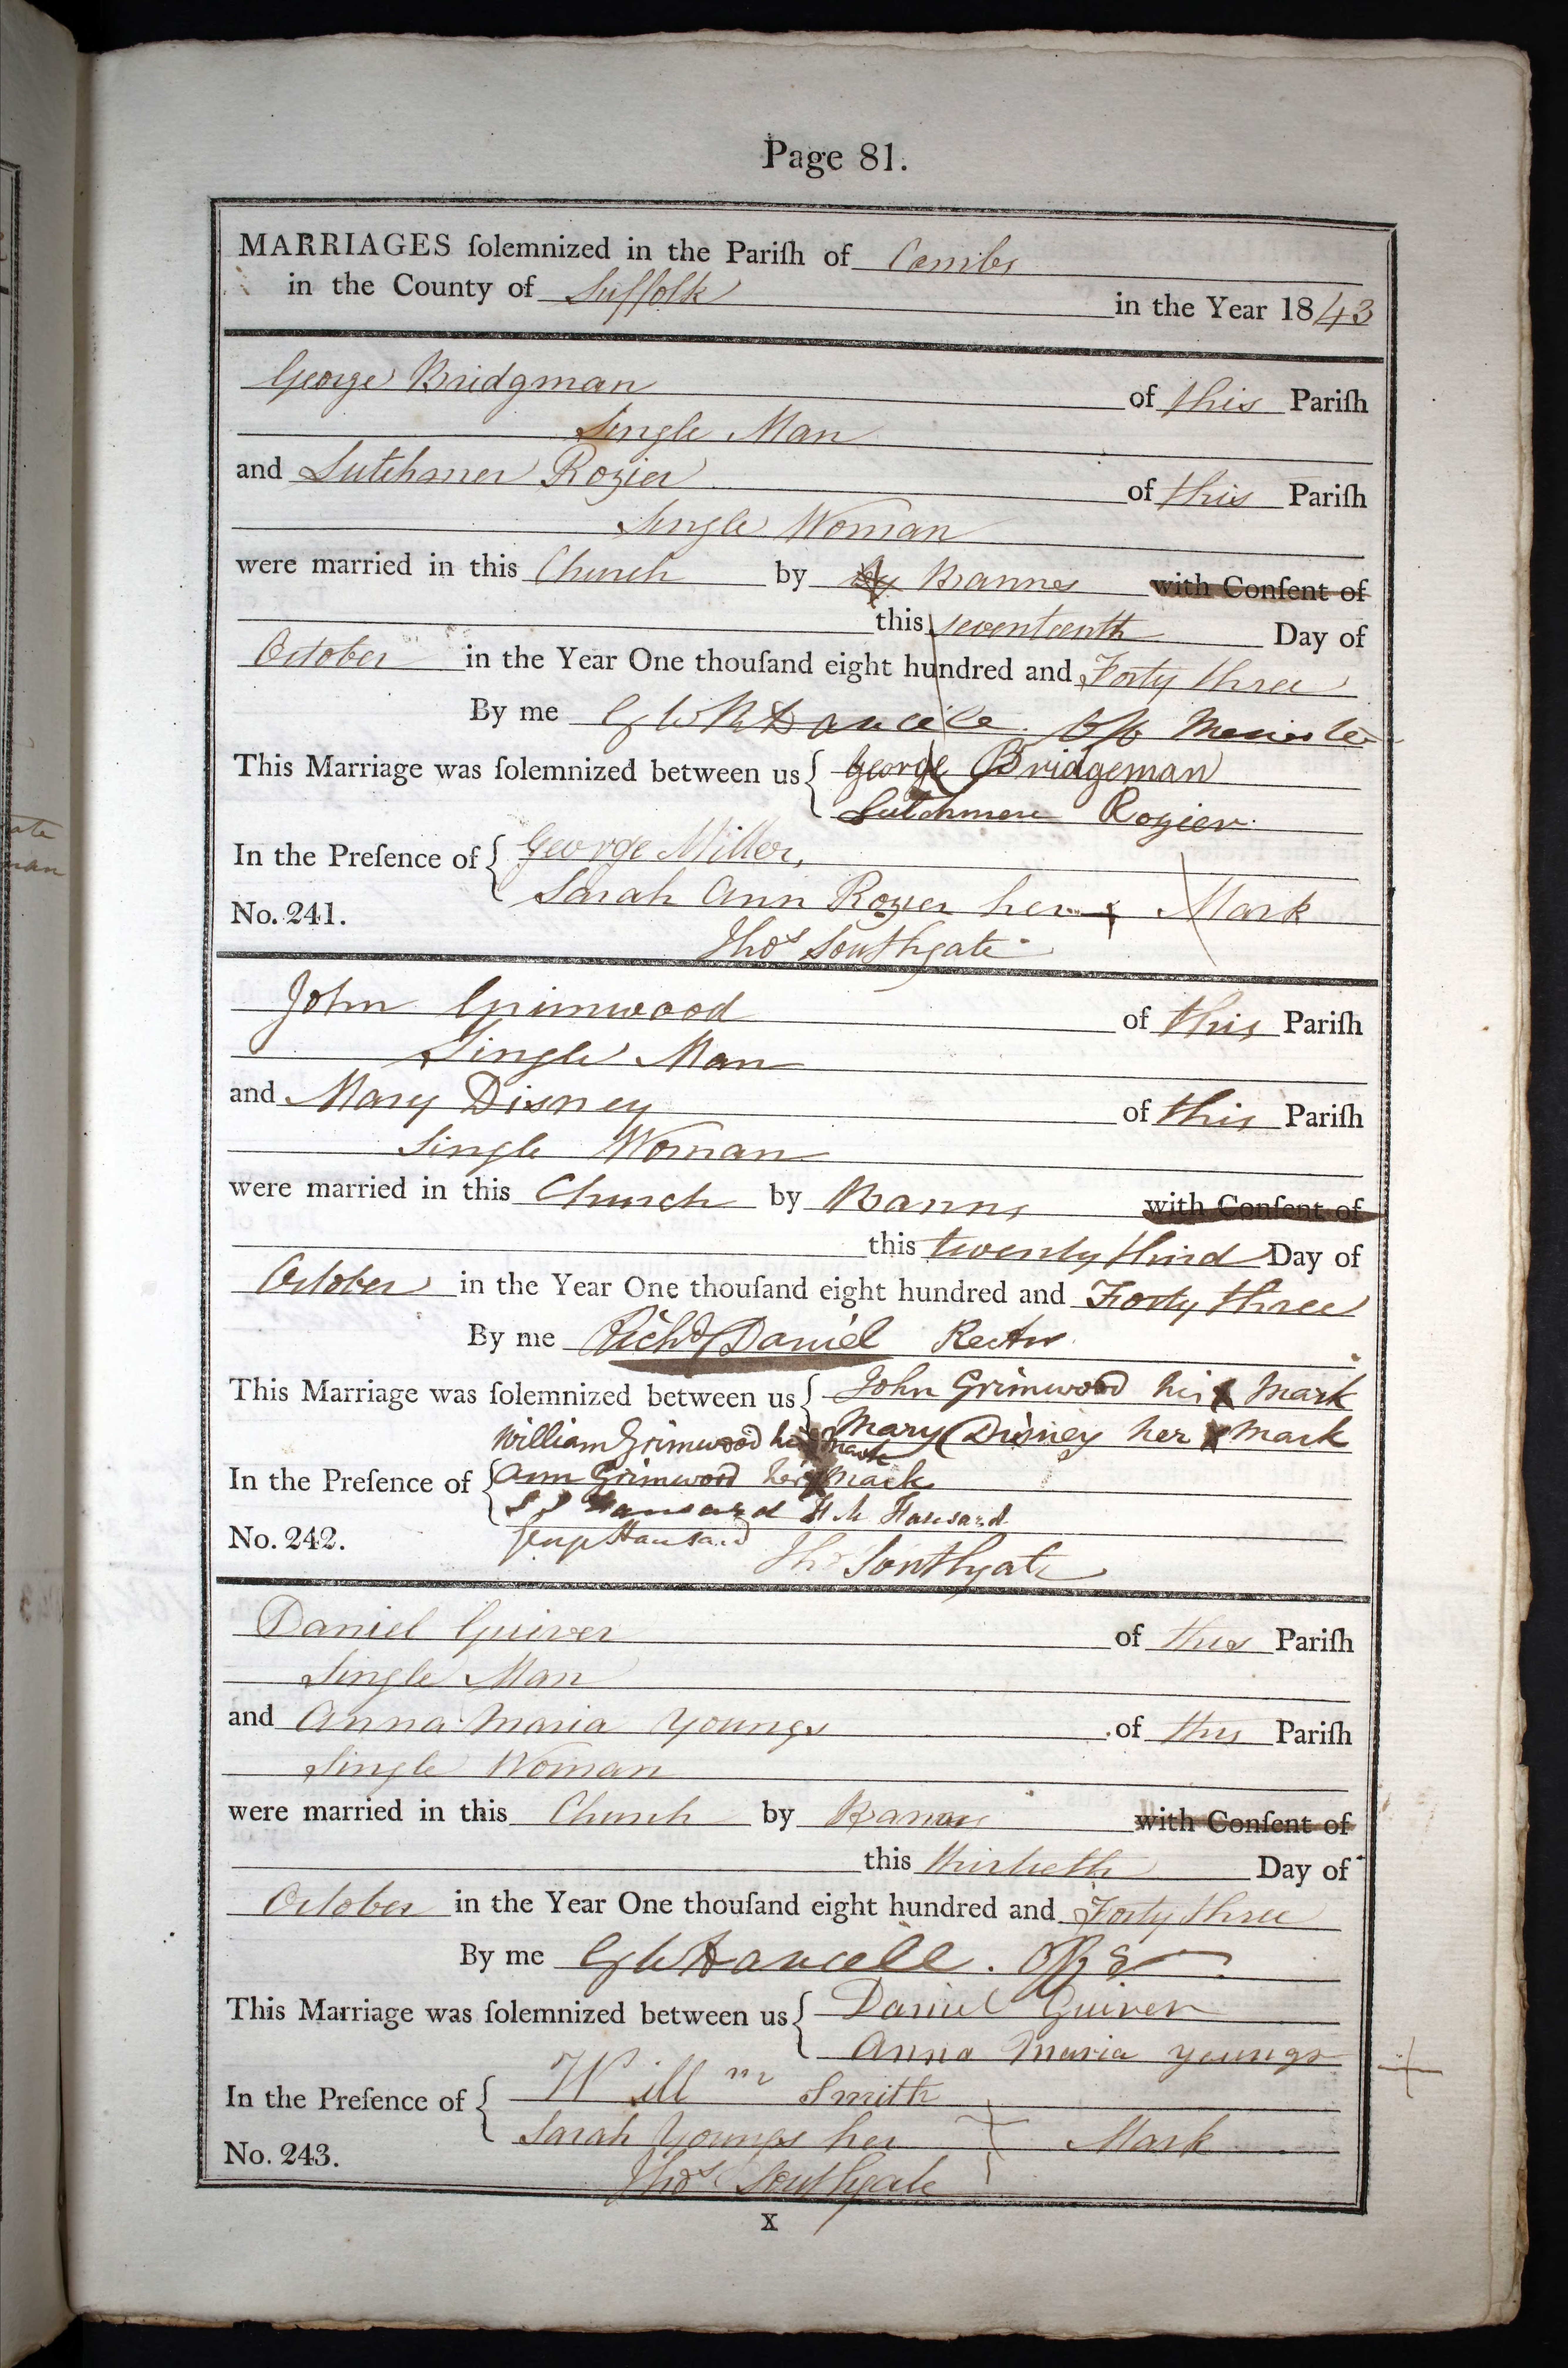 Page 81.
MARRIAGES ſolemnized in the Pariſh of Combs
in the County of Suffolk in the Year 1843
George Bridgman of this Pariſh
Single Man
and Lutchmer Rozier of this Pariſh
Single Woman
were married in this Church by by Bannes with Conſent of
this seventeenth Day of
October in the Year One thouſand eight hundred and Forty three
By me
This Marriage was ſolemnized between us George Bridgeman
Lutchmere Rozier
In the Preſence of George Miller,
Sarah Ann Rozier her x Mark
No. 241.
Thos Southgate
John Grimwood of this Pariſh
Single Man
and Mary Disney of this Pariſh
Single Woman
were married in this Church by Banns with Conſent of
this twenty third Day of
October in the Year One thouſand eight hundred and Forty three
By me Richd Daniel Rector
This Marriage was ſolemnized between us John Grimwood his x Mark
Mary Disney her x mark
William Grimwood his x mark
In the Preſence of Ann Grimwood her x Mark
Hansard H M Hansard
No. 242.
Hansard Thos Southgate
Daniel Guiver of this Pariſh
Single Man
and Anna Maria Youngs of this Pariſh
Single Woman
were married in this Church by Banns with Conſent of
this thirtieth Day of
October in the Year One thouſand eight hundred and Forty three
By me
This Marriage was ſolemnized between us Daniel Guiver
Anna Maria Youngs
In the Preſence of Willm Smith
Sarah Youngs her x Mark
No. 243.
Thos Southgate
X